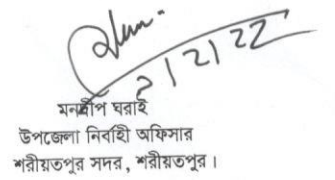 মনদীপ ঘরাই
উপজেলা নির্বাহী অফিসার
শরীয়তপুর সদর, শরীয়তপুর।